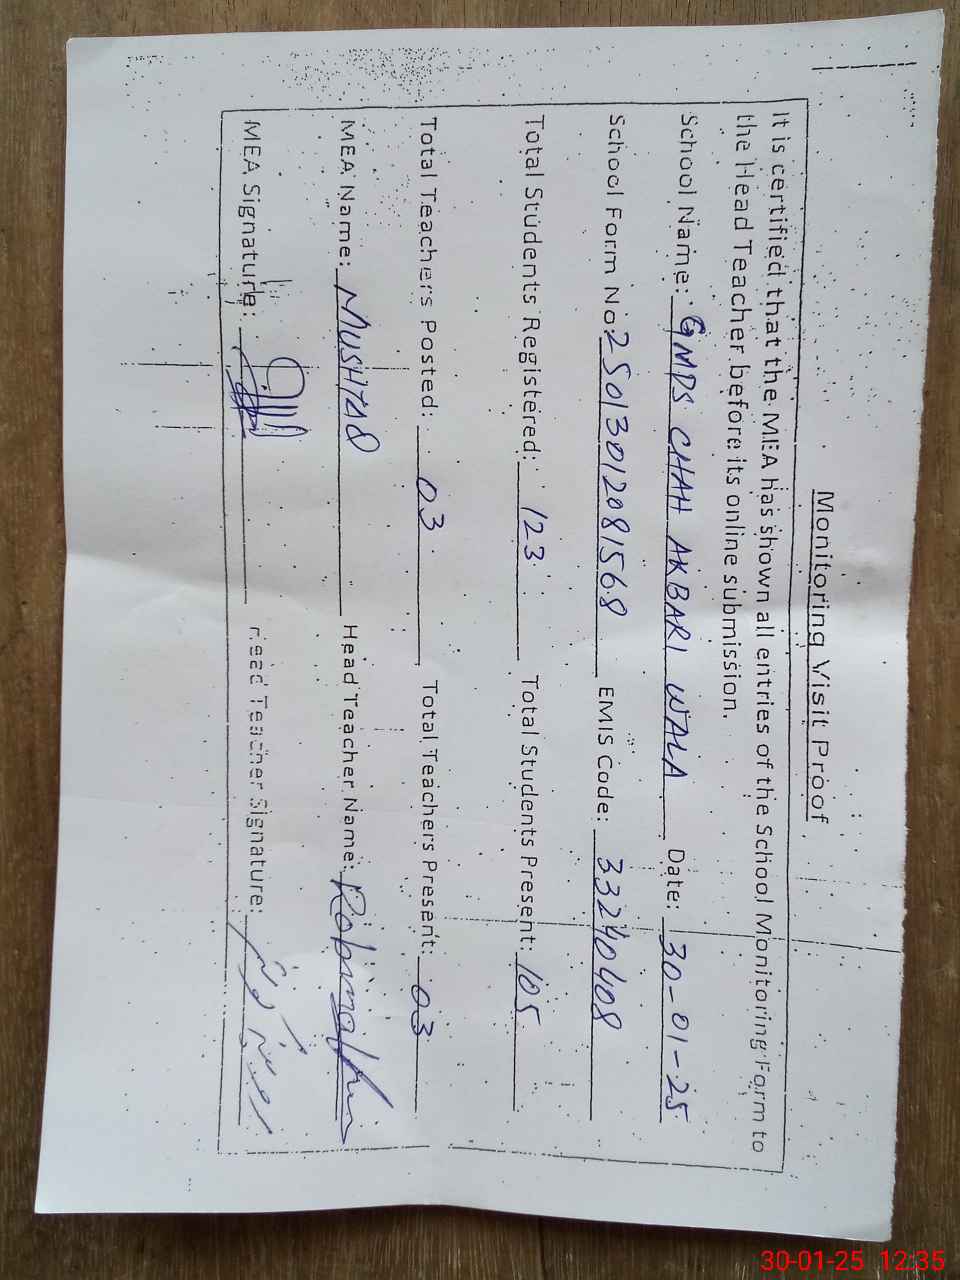 Monitoring Visit Proof
It is certified that the MEA has shown all entries of the School Monitoring Form to
the Head Teacher before its online submission.
School Name: GMPS CHAH AKBARI WALA Date: 30-01-25
School Form No: 25013012081568 EMIS Code: 33240408
Total Students Registered: 123 Total Students Present: 105
Total Teachers Posted: 03 Total Teachers Present: 03
MEA Name: MUSHTAQ Head Teacher Name:
MEA Signature: Head Teacher Signature:
30-01-25 12:35